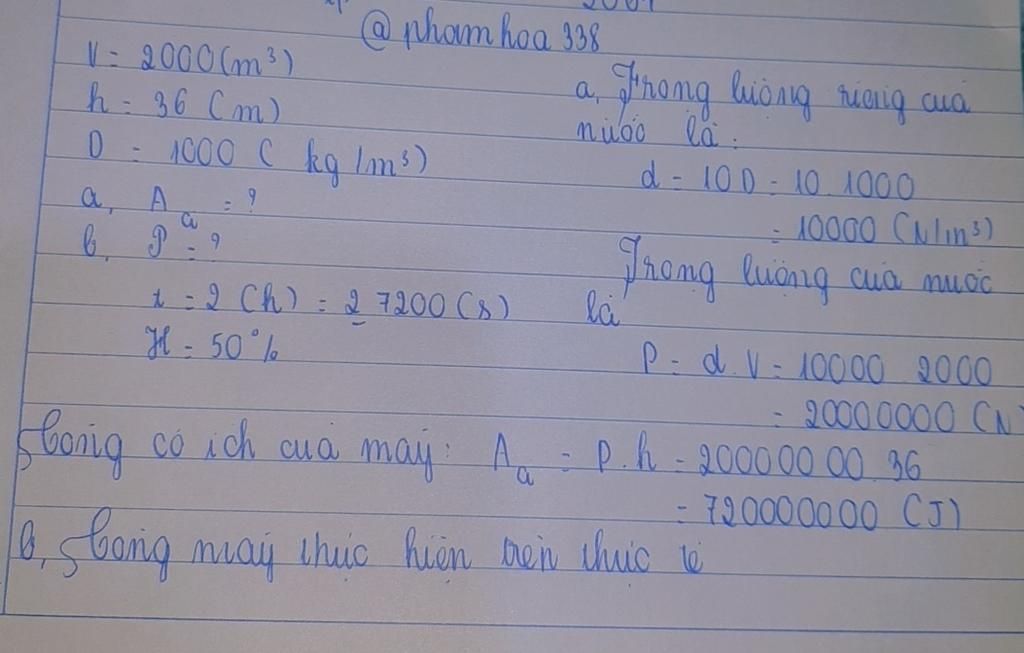 @phamhoa338
V = 2000 (m³)
h = 36 (m)
D = 1000 ( kg/m³)
a, Aₐ = ?
b, P = ?
t = 2 (h) = 2 7200 (s)
H = 50%
a, Trọng lượng riêng của
nước là :
d = 10D = 10.1000
= 10000 (N/m³)
Trọng lượng của nước
là
P = d.V = 10000 2000
= 20000000 (N
Công có ích của máy: Aₐ = P.h = 20000000.36
= 720000000 (J)
b, Công máy thực hiện trên thực tế